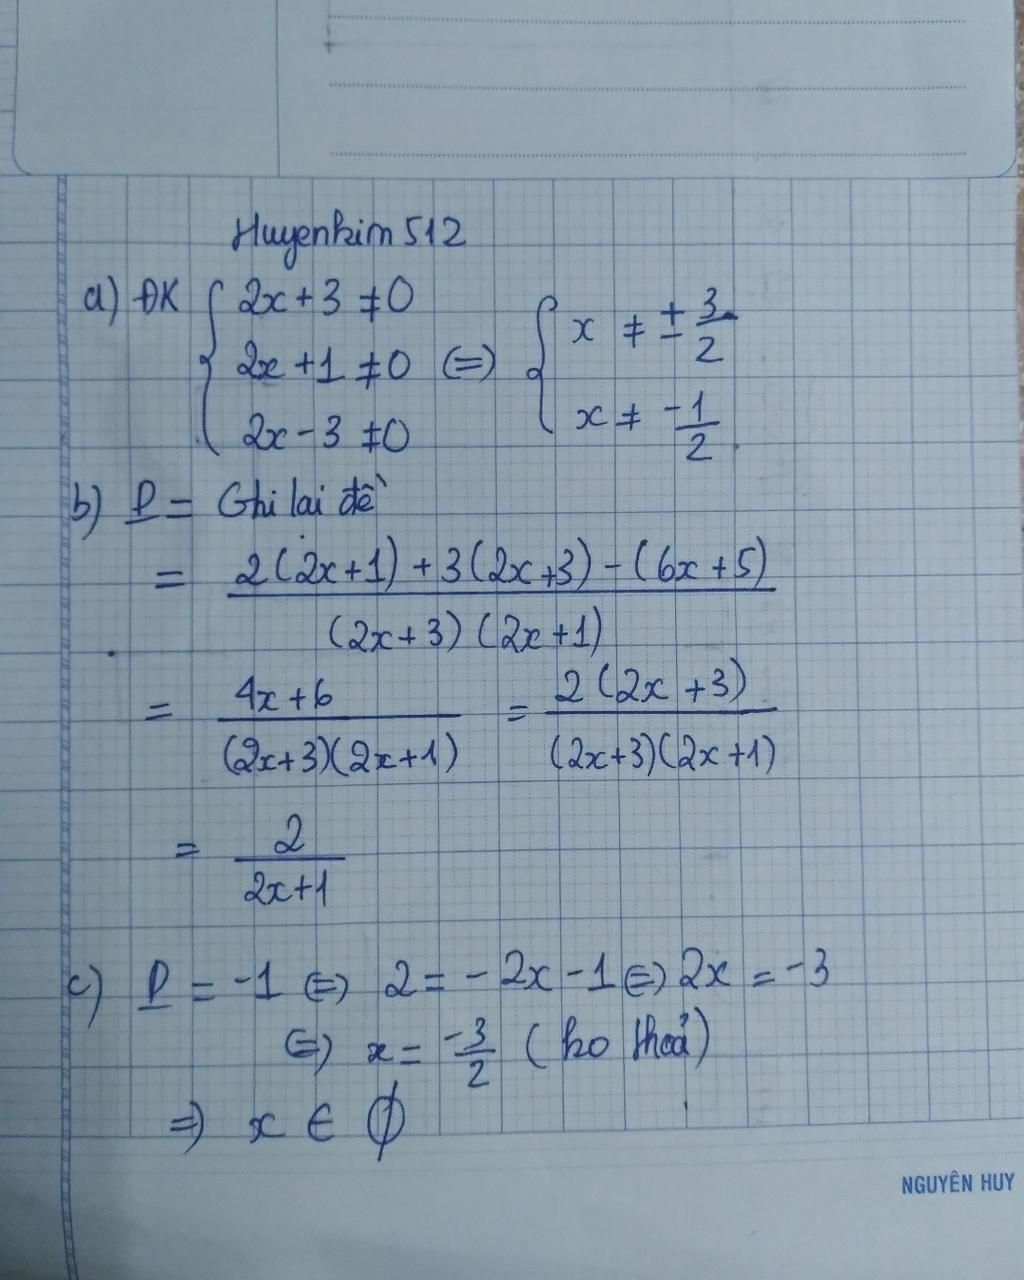 Huyenkim 512
a) ĐK { 2x + 3 ≠ 0
2x + 1 ≠ 0 (=) { x ≠ ± 3/2
2x - 3 ≠ 0 x ≠ -1/2
b) P = Ghi lại đề
= (2(2x+1) + 3(2x+3) - (6x+5)) / ((2x+3)(2x+1))
= (4x+6) / ((2x+3)(2x+1)) = (2(2x+3)) / ((2x+3)(2x+1))
= 2 / (2x+1)
c) P = -1 (=) 2 = -2x - 1 (=) 2x = -3
(=) x = -3/2 (ko thoả)
=) x ∈ ∅
NGUYÊN HUY